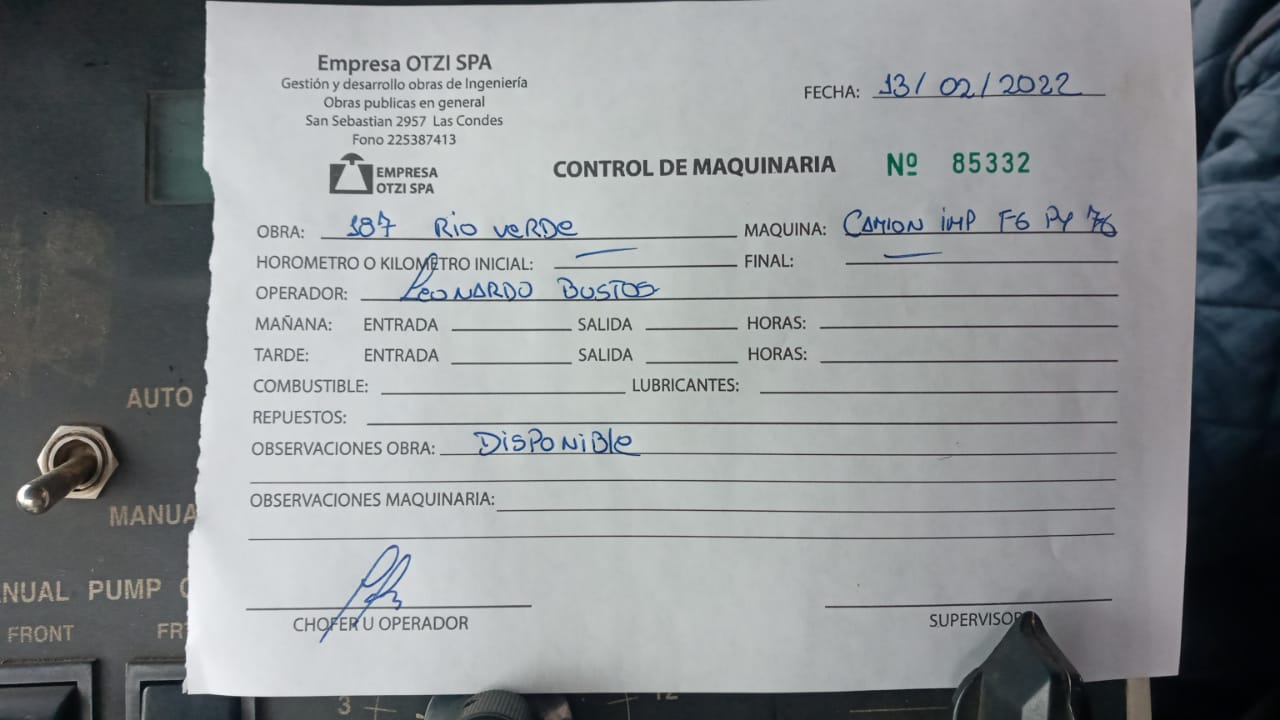 Empresa OTZI SPA
Gestión y desarrollo obras de Ingeniería
Obras publicas en general
San Sebastian 2957 Las Condes
Fono 225387413
EMPRESA
OTZI SPA
FECHA: 13/02/2022
CONTROL DE MAQUINARIA Nº 85332
OBRA: 187 Rio VeRDe MAQUINA: CAMION iMP FG PY 76
HOROMETRO O KILOMETRO INICIAL: — FINAL: —
OPERADOR: LeoNARDO BUSTOS
MAÑANA: ENTRADA SALIDA HORAS:
TARDE: ENTRADA SALIDA HORAS:
COMBUSTIBLE: LUBRICANTES:
REPUESTOS:
OBSERVACIONES OBRA: DisPoNiBle
OBSERVACIONES MAQUINARIA:
CHOFER U OPERADOR SUPERVISOR
AUTO
MANUA
NUAL PUMP
FRONT
3
12